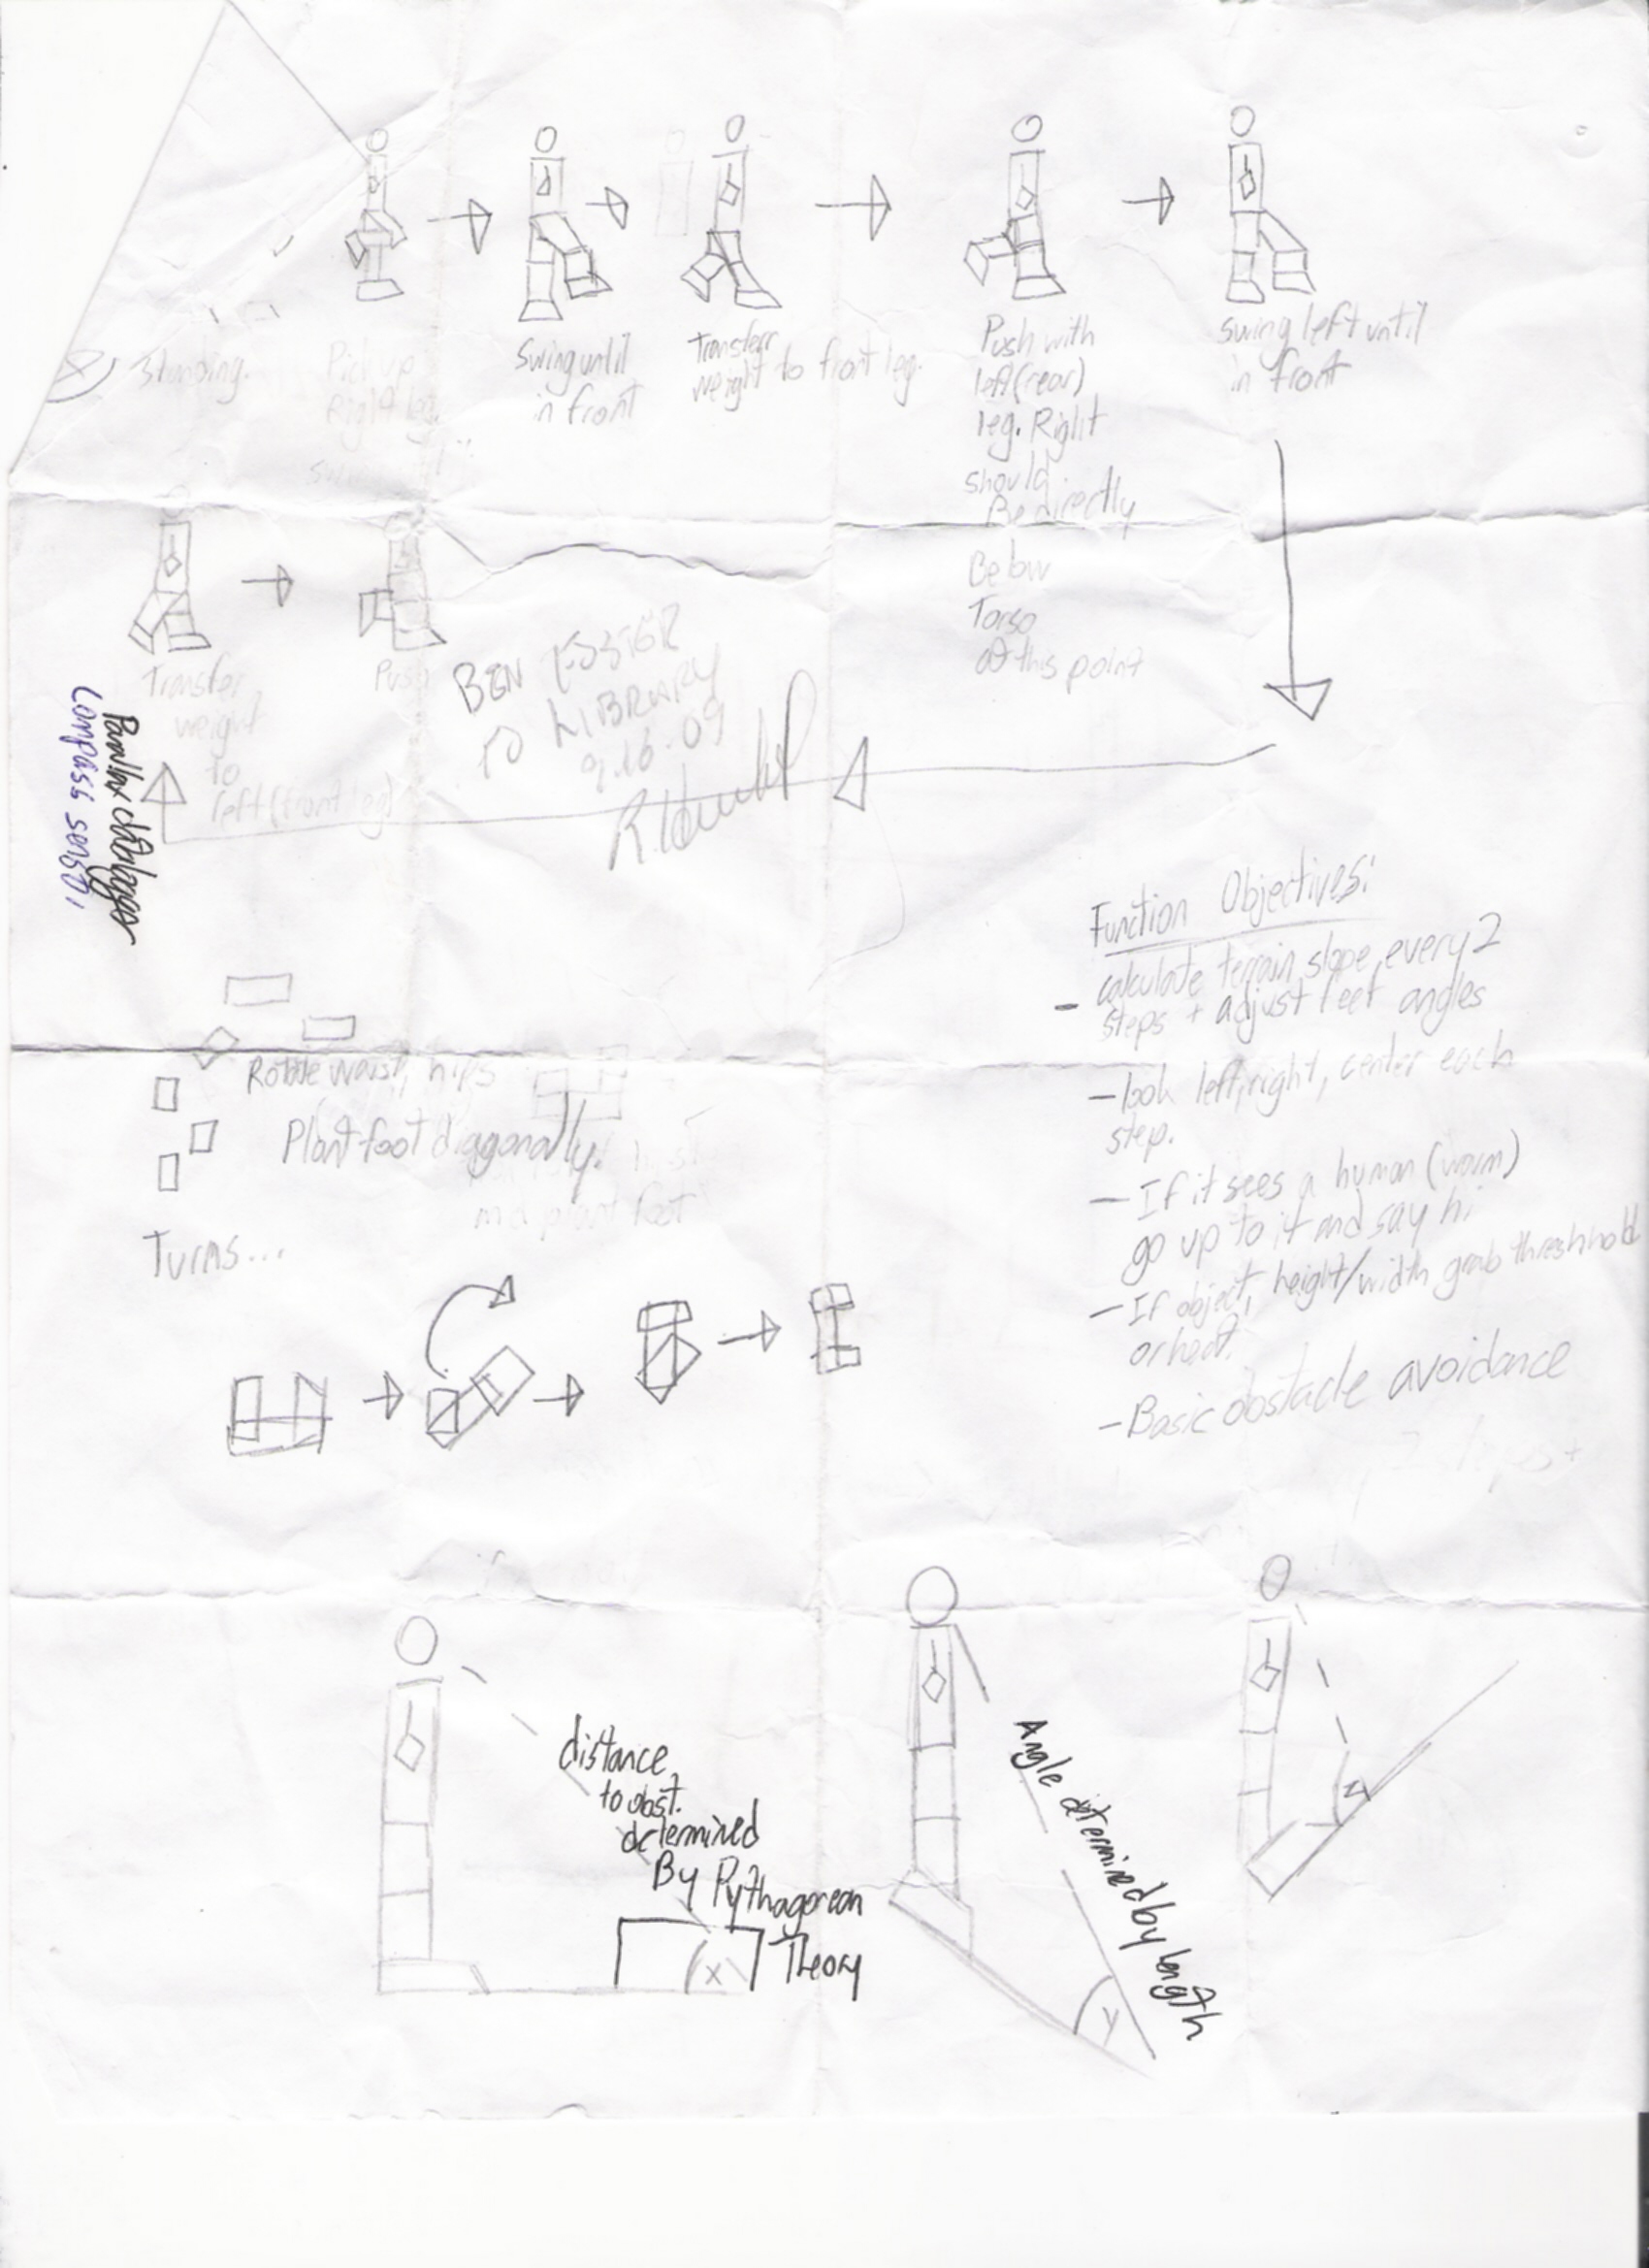 Standing.
Pick up
Right leg
Swing until
in front
Transferr
weight to front leg.
Push with
left (rear)
leg. Right
should
Be directly
Below
Torso
at this point
Swing left until
in front
Transfer
weight
to
left (front leg)
Push
BEN
TO LIBRARY
9.16.09
Parallax
Compass sensor,
Function Objectives:
- calculate terrain slope every 2
steps + adjust feet angles
- look left, right, center each
step.
- If it sees a human (warm)
go up to it and say hi
- If object, height/width grab threshhold
or heat.
- Basic obstacle avoidance
Rotate waist, hips
Plant foot diagonally.
and plant foot
Turns...
distance
to obst.
determined
By Pythagorean
Theory
X
Angle determined by length
Y